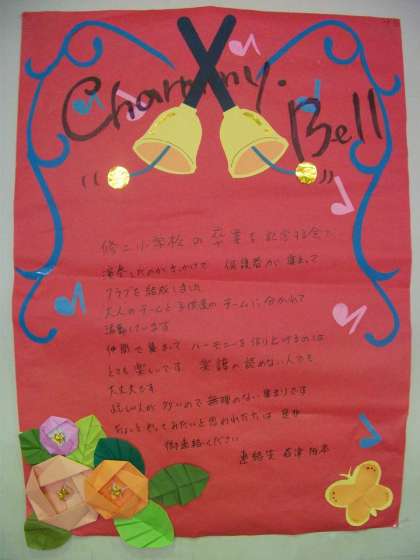 Charmny.
Bell
修二小学校の卒業を記念する会で
演奏したのがきっかけで 保護者が集まって
クラブを結成しました
大人のチームと子供達のチームに分かれて
活動しています
仲間で集まって ハーモニーを作り上げるのは
とても楽しいです 楽譜の読めない人でも
大丈夫です
忙しい人が多いので無理のない集まりです
ちょっとやってみたいと思われた方は 是非
御連絡ください
連絡先